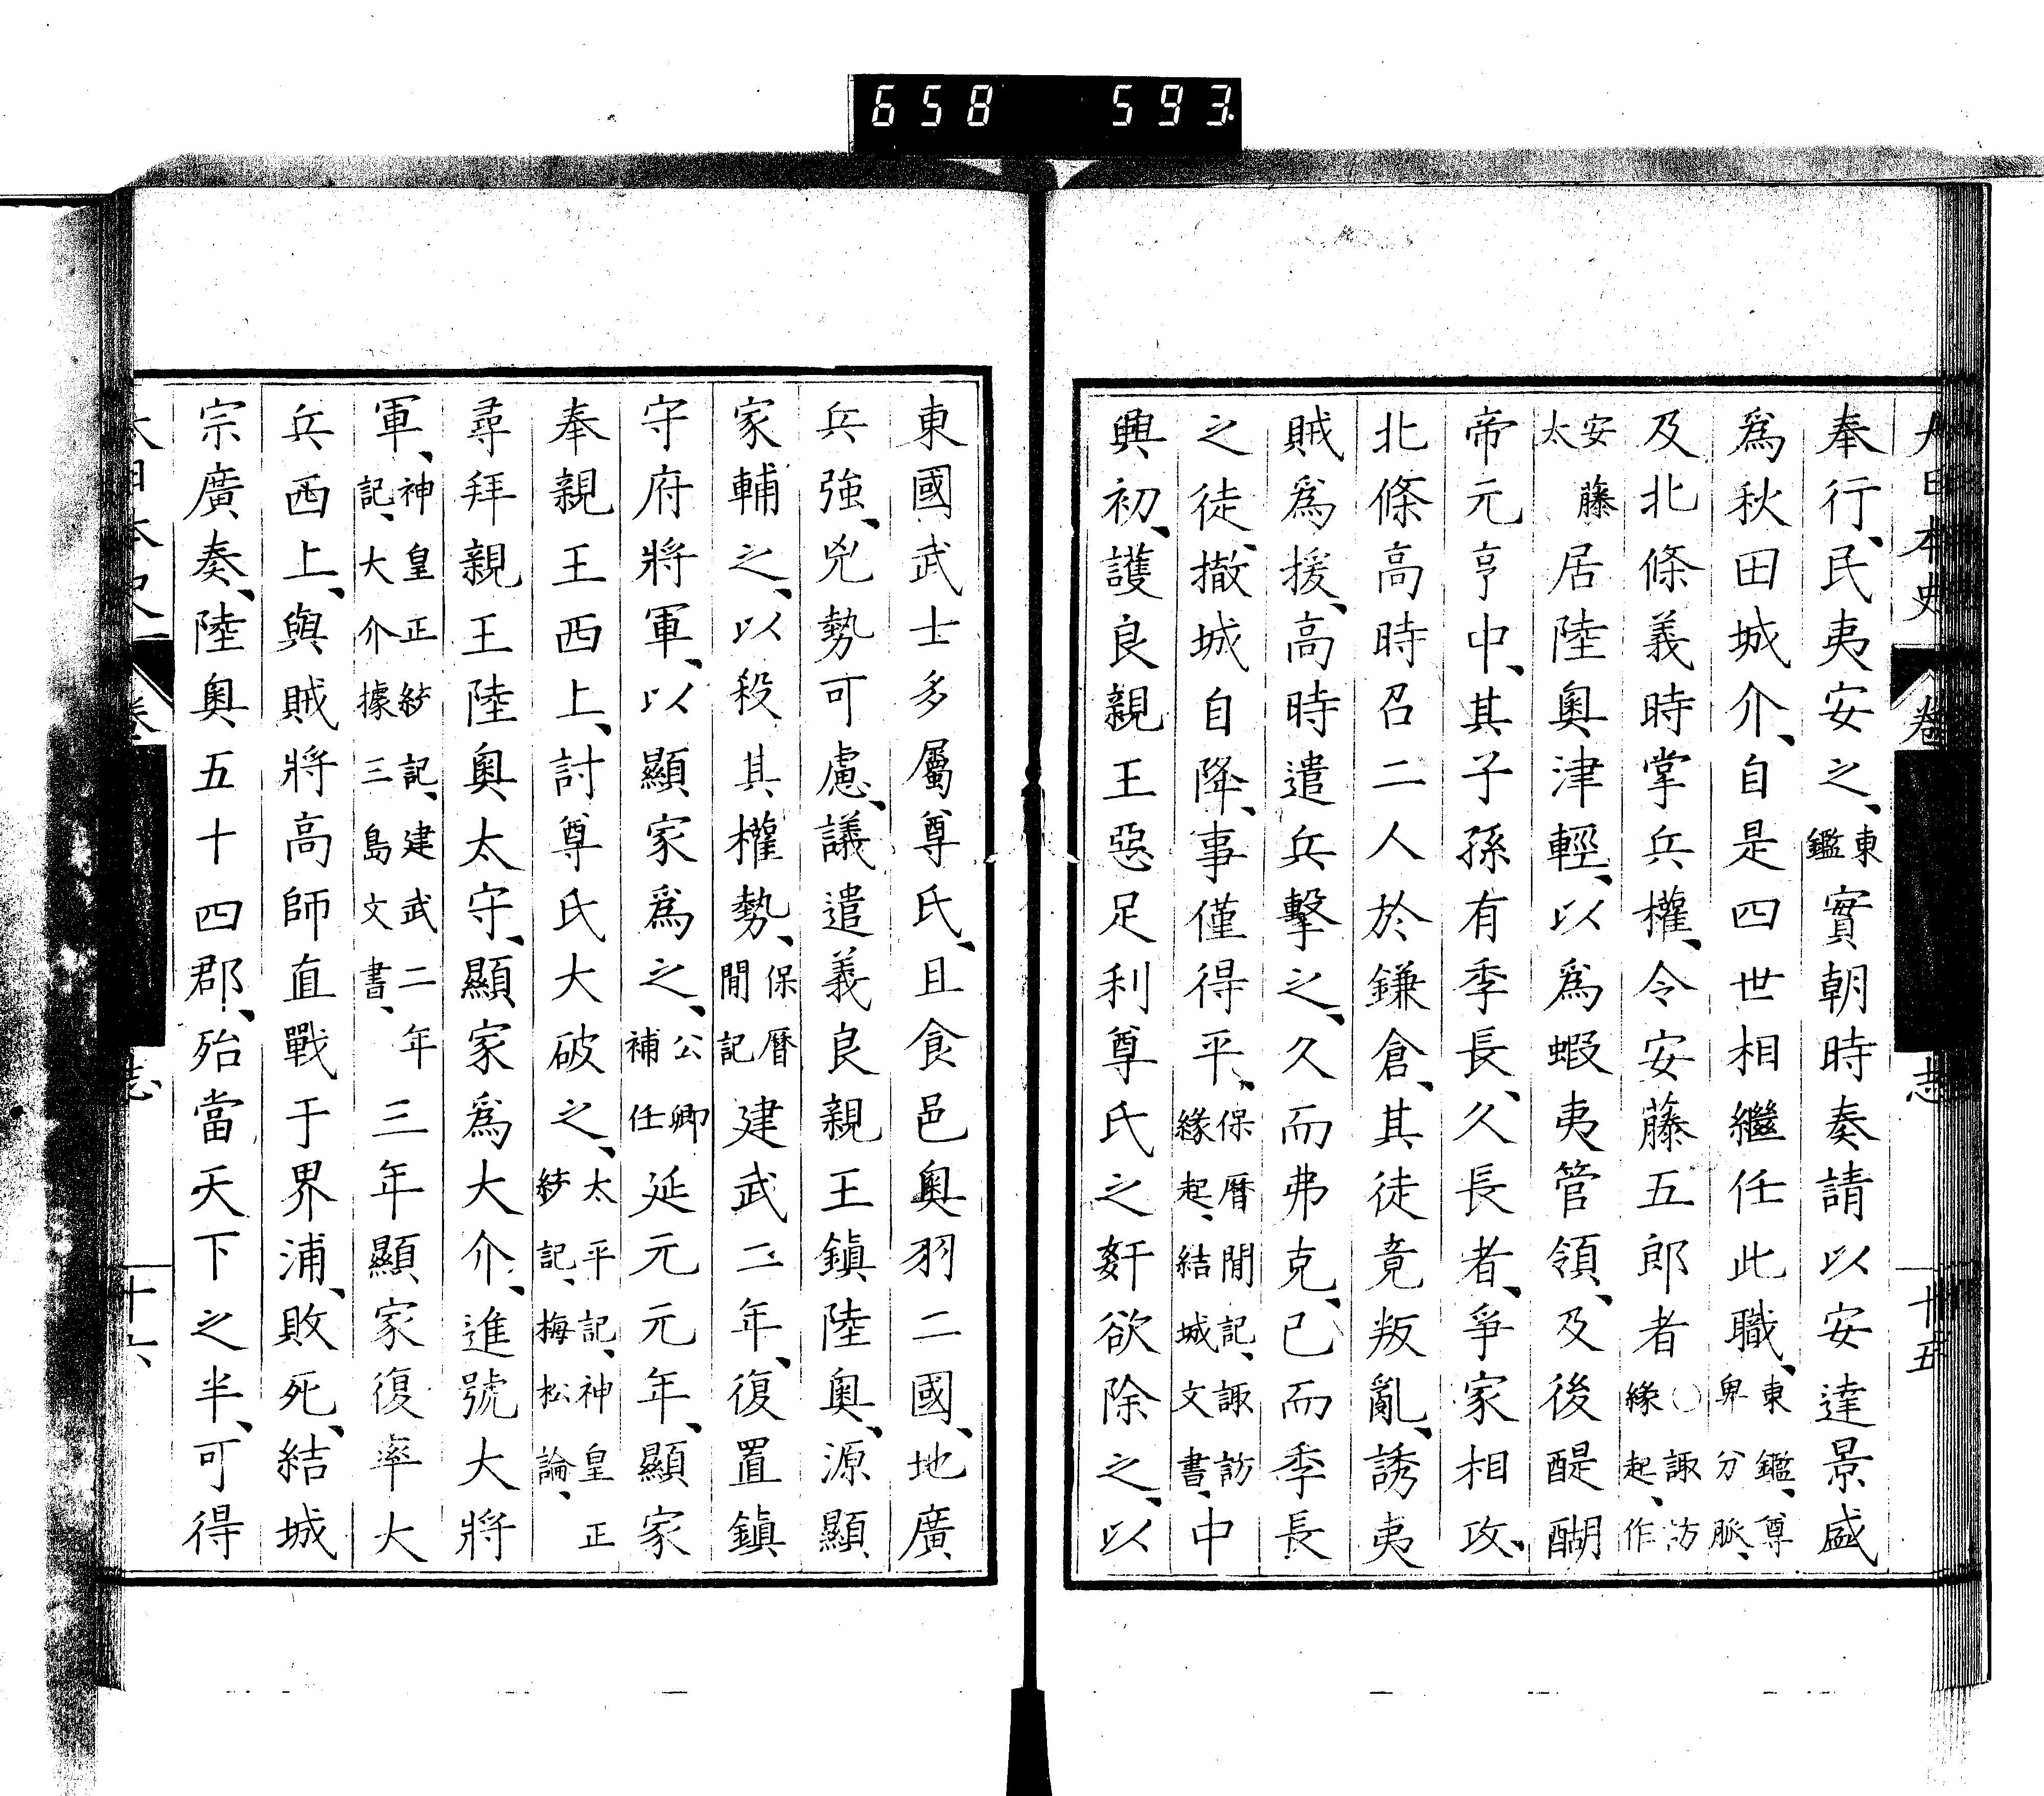 658 593
大日本史 卷 志 十五
奉行、民夷安之、東鑑實朝時奏請以安達景盛
爲秋田城介、自是四世相繼任此職、東鑑、尊卑分脈、
及北條義時掌兵權、令安藤五郎者○諏訪緣起、作
安藤太居陸奧津輕、以爲蝦夷管領、及後醍醐
帝元亨中、其子孫有季長、久長者、爭家相攻、
北條高時召二人於鎌倉、其徒竟叛亂、誘夷
賊爲援、高時遣兵擊之、久而弗克、已而季長
之徒、撤城自降、事僅得平、保曆閒記、諏訪緣起、結城文書、中
興初、護良親王惡足利尊氏之姧欲除之、以
東國武士多屬尊氏、且食邑奧羽二國、地廣
兵強、兇勢可慮、議遣義良親王鎭陸奧、源顯
家輔之、以殺其權勢、保曆閒記建武二年、復置鎭
守府將軍、以顯家爲之、公卿補任延元元年、顯家
奉親王西上、討尊氏大破之、太平記、神皇正統記、梅松論、
尋拜親王陸奧太守、顯家爲大介、進號大將
軍、神皇正統記、建武二年記、大介據三島文書、三年顯家復率大
兵西上、與賊將高師直戰于界浦、敗死、結城
宗廣奏、陸奧五十四郡、殆當天下之半、可得
大日本史 卷 志 十六